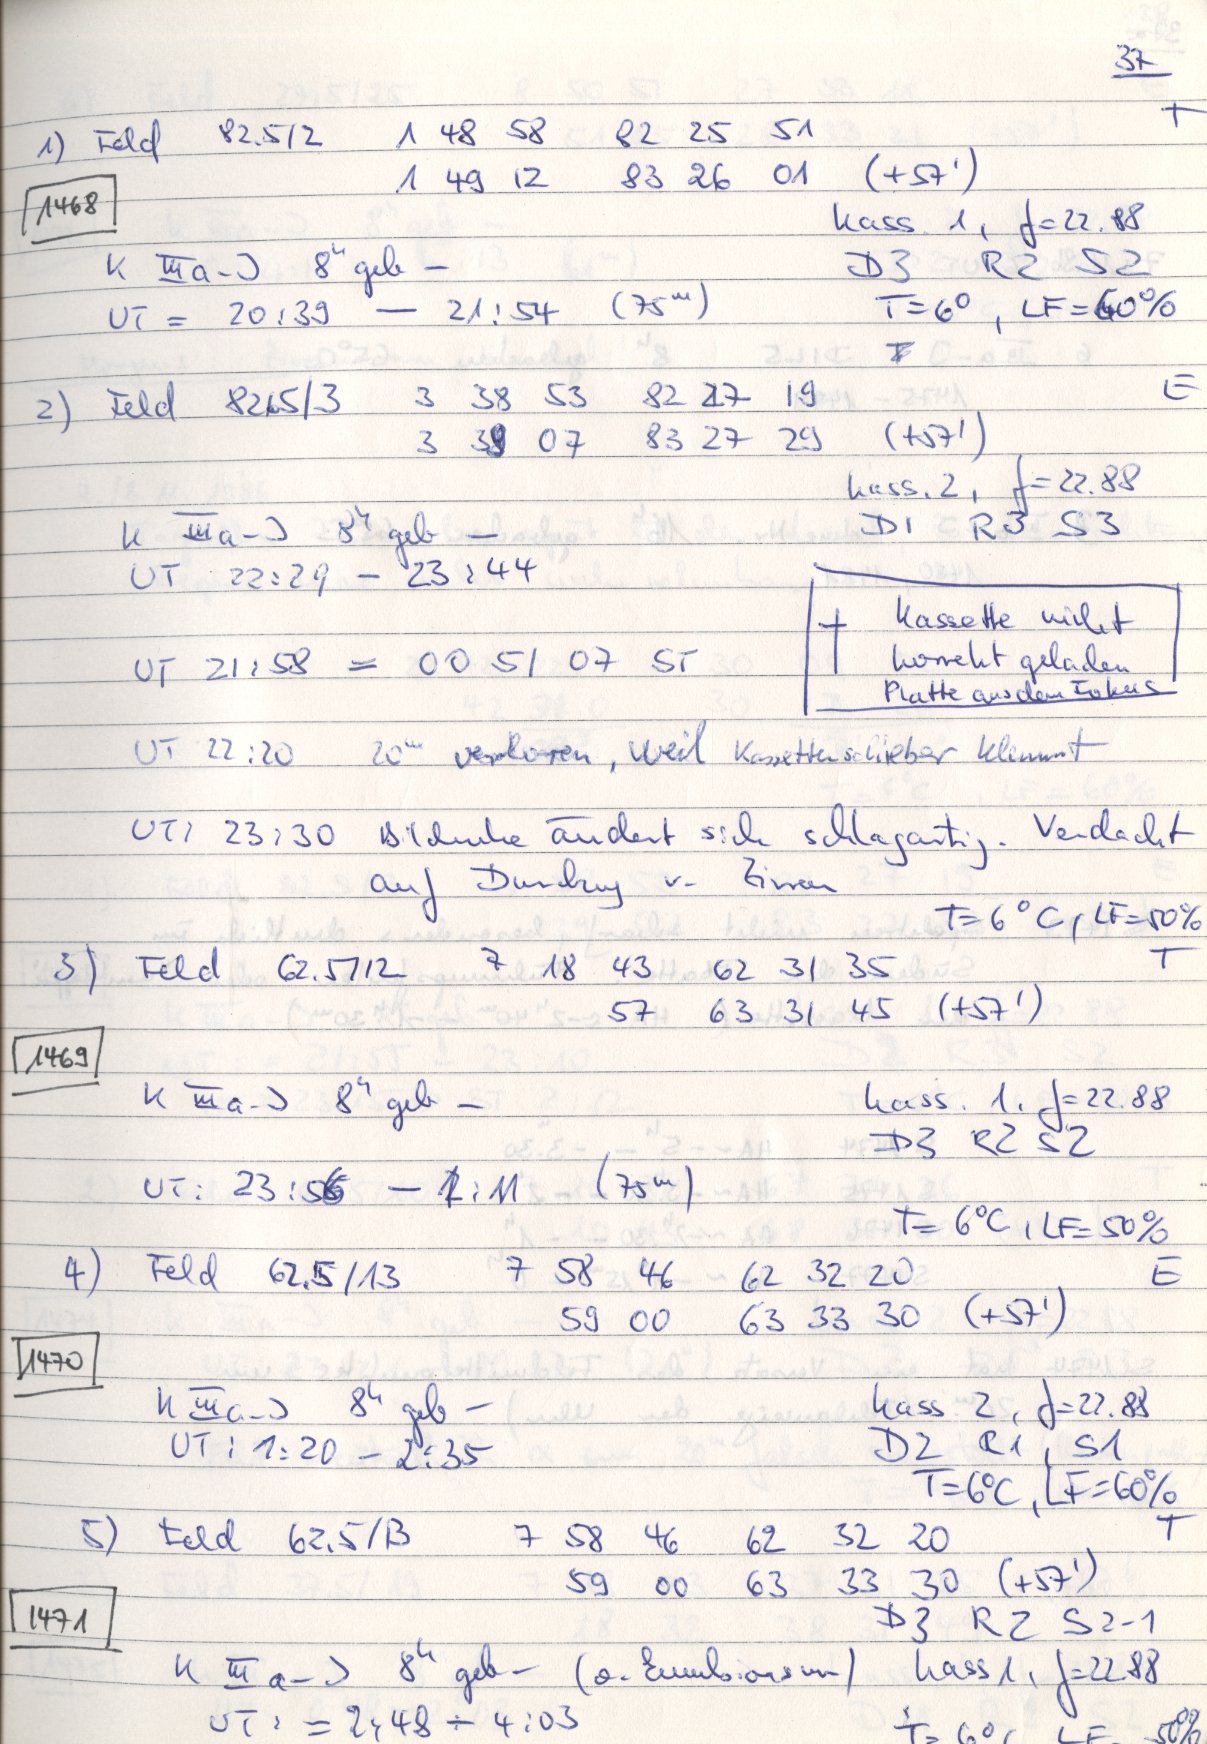 37
T
1) Feld 82.5/2 1 48 58 82 25 51
1 49 12 83 26 01 (+57')
1468
Kass. 1, f=22.88
K IIIa-J 8h geb – D3 R2 S2
UT = 20:39 — 21:54 (75m) T=6°, LF=60%
E
2) Feld 82.5/3 3 38 53 82 27 19
3 39 07 83 27 29 (+57')
Kass. 2, f=22.88
K IIIa-J 8h geb – D1 R3 S3
UT 22:29 – 23:44
† Kassette nicht
korrekt geladen
Platte aus dem Fokus
UT 21:58 = 00 51 07 ST
UT 22:20 20m verloren, weil Kassettenschieber klemmt
UT: 23:30 Bildruhe ändert sich schlagartig. Verdacht
auf Durchzug v. Zirren
T=6°C, LF=50%
3) Feld 62.5/12 7 18 43 62 31 35 T
57 63 31 45 (+57')
1469
K IIIa-J 8h geb – Kass. 1, f=22.88
D3 R2 S2
UT: 23:56 – 1:11 (75m)
T=6°C, LF=50%
4) Feld 62.5/13 7 58 46 62 32 20 E
59 00 63 33 30 (+57')
1470
K IIIa-J 8h geb – Kass 2, f=22.88
UT: 1:20 – 2:35 D2 R1, S1
T=6°C, LF=60%
5) Feld 62.5/13 7 58 46 62 32 20 T
59 00 63 33 30 (+57')
1471
D3 R2 S2-1
K IIIa-J 8h geb – Kass 1, f=22.88
UT: = 2:48 ÷ 4:03
T=6°C LF=50%